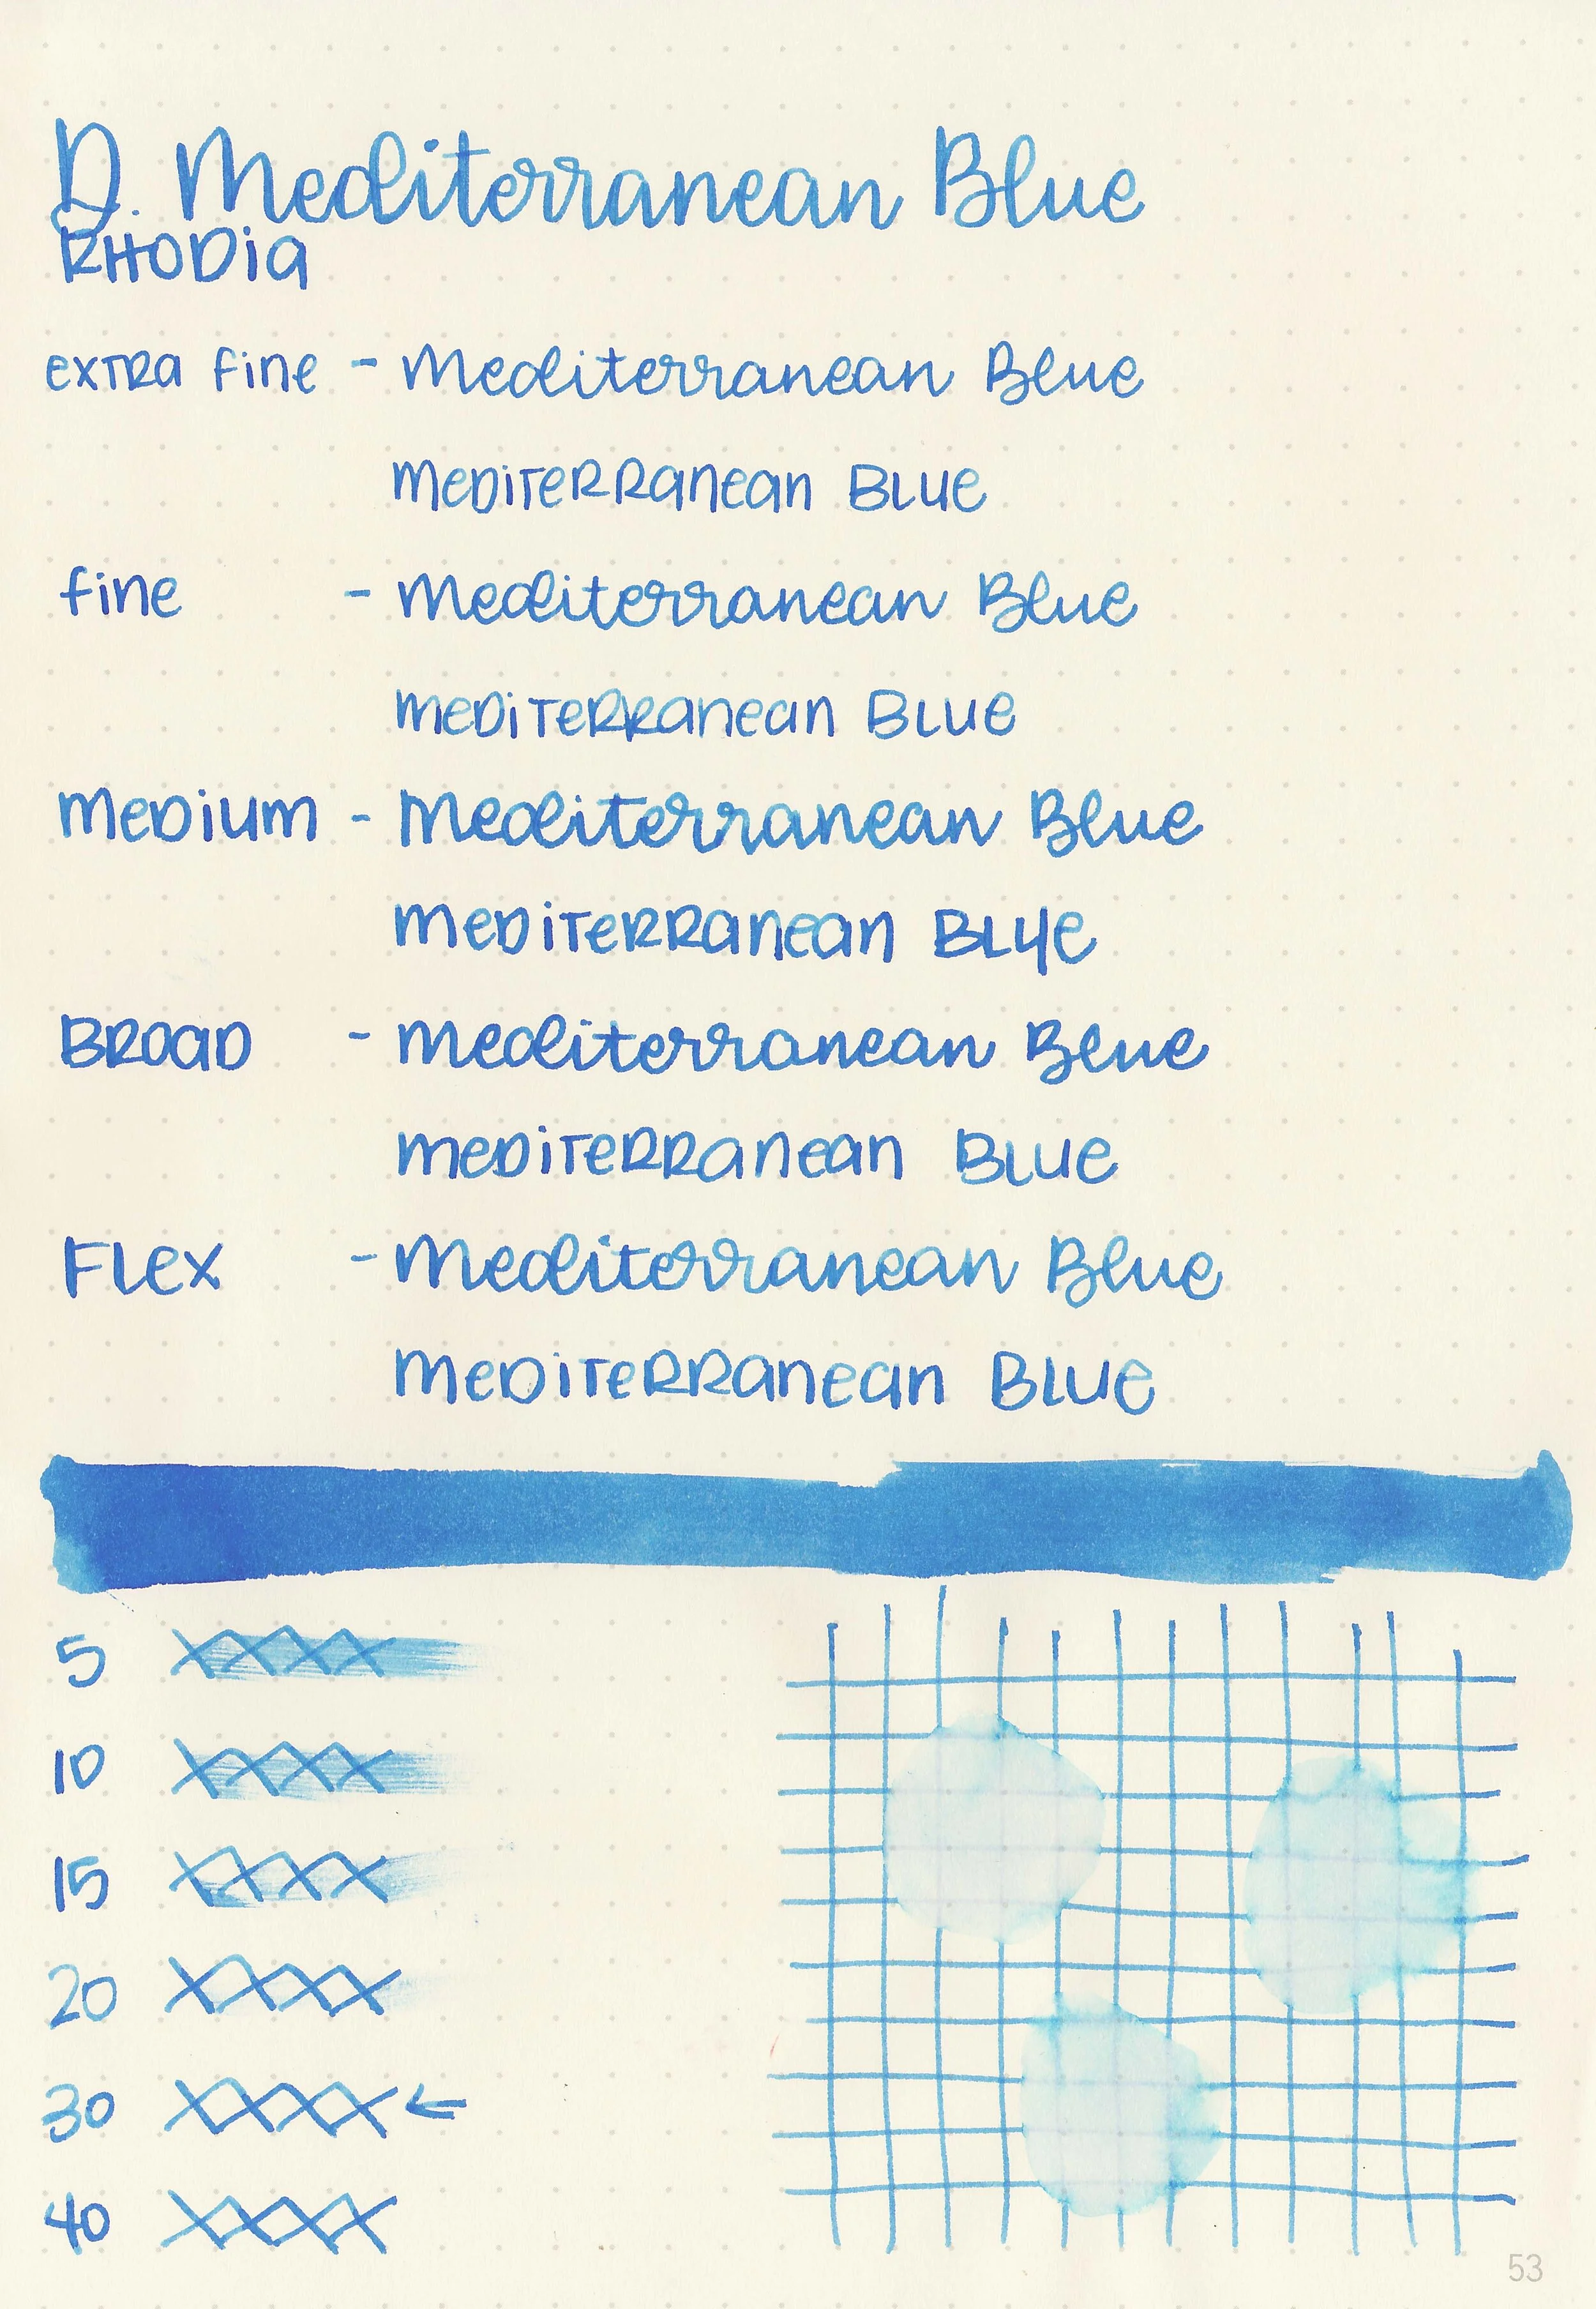 D. Mediterranean Blue
RHODia
exTRa fine - Mediterranean Blue
meDiTeRRanean BLue
fine - Mediterranean Blue
meDiTeRRanean BLue
meDium - Mediterranean Blue
meDiTeRRanean BLye
BROaD - Mediterranean Blue
meDiTeRRanean BLue
FLex - Mediterranean Blue
meDiTeRRanean BLue
5 XXXX
10 XXXX
15 XXXX
20 XXXX
30 XXXX ←
40 XXXX
53